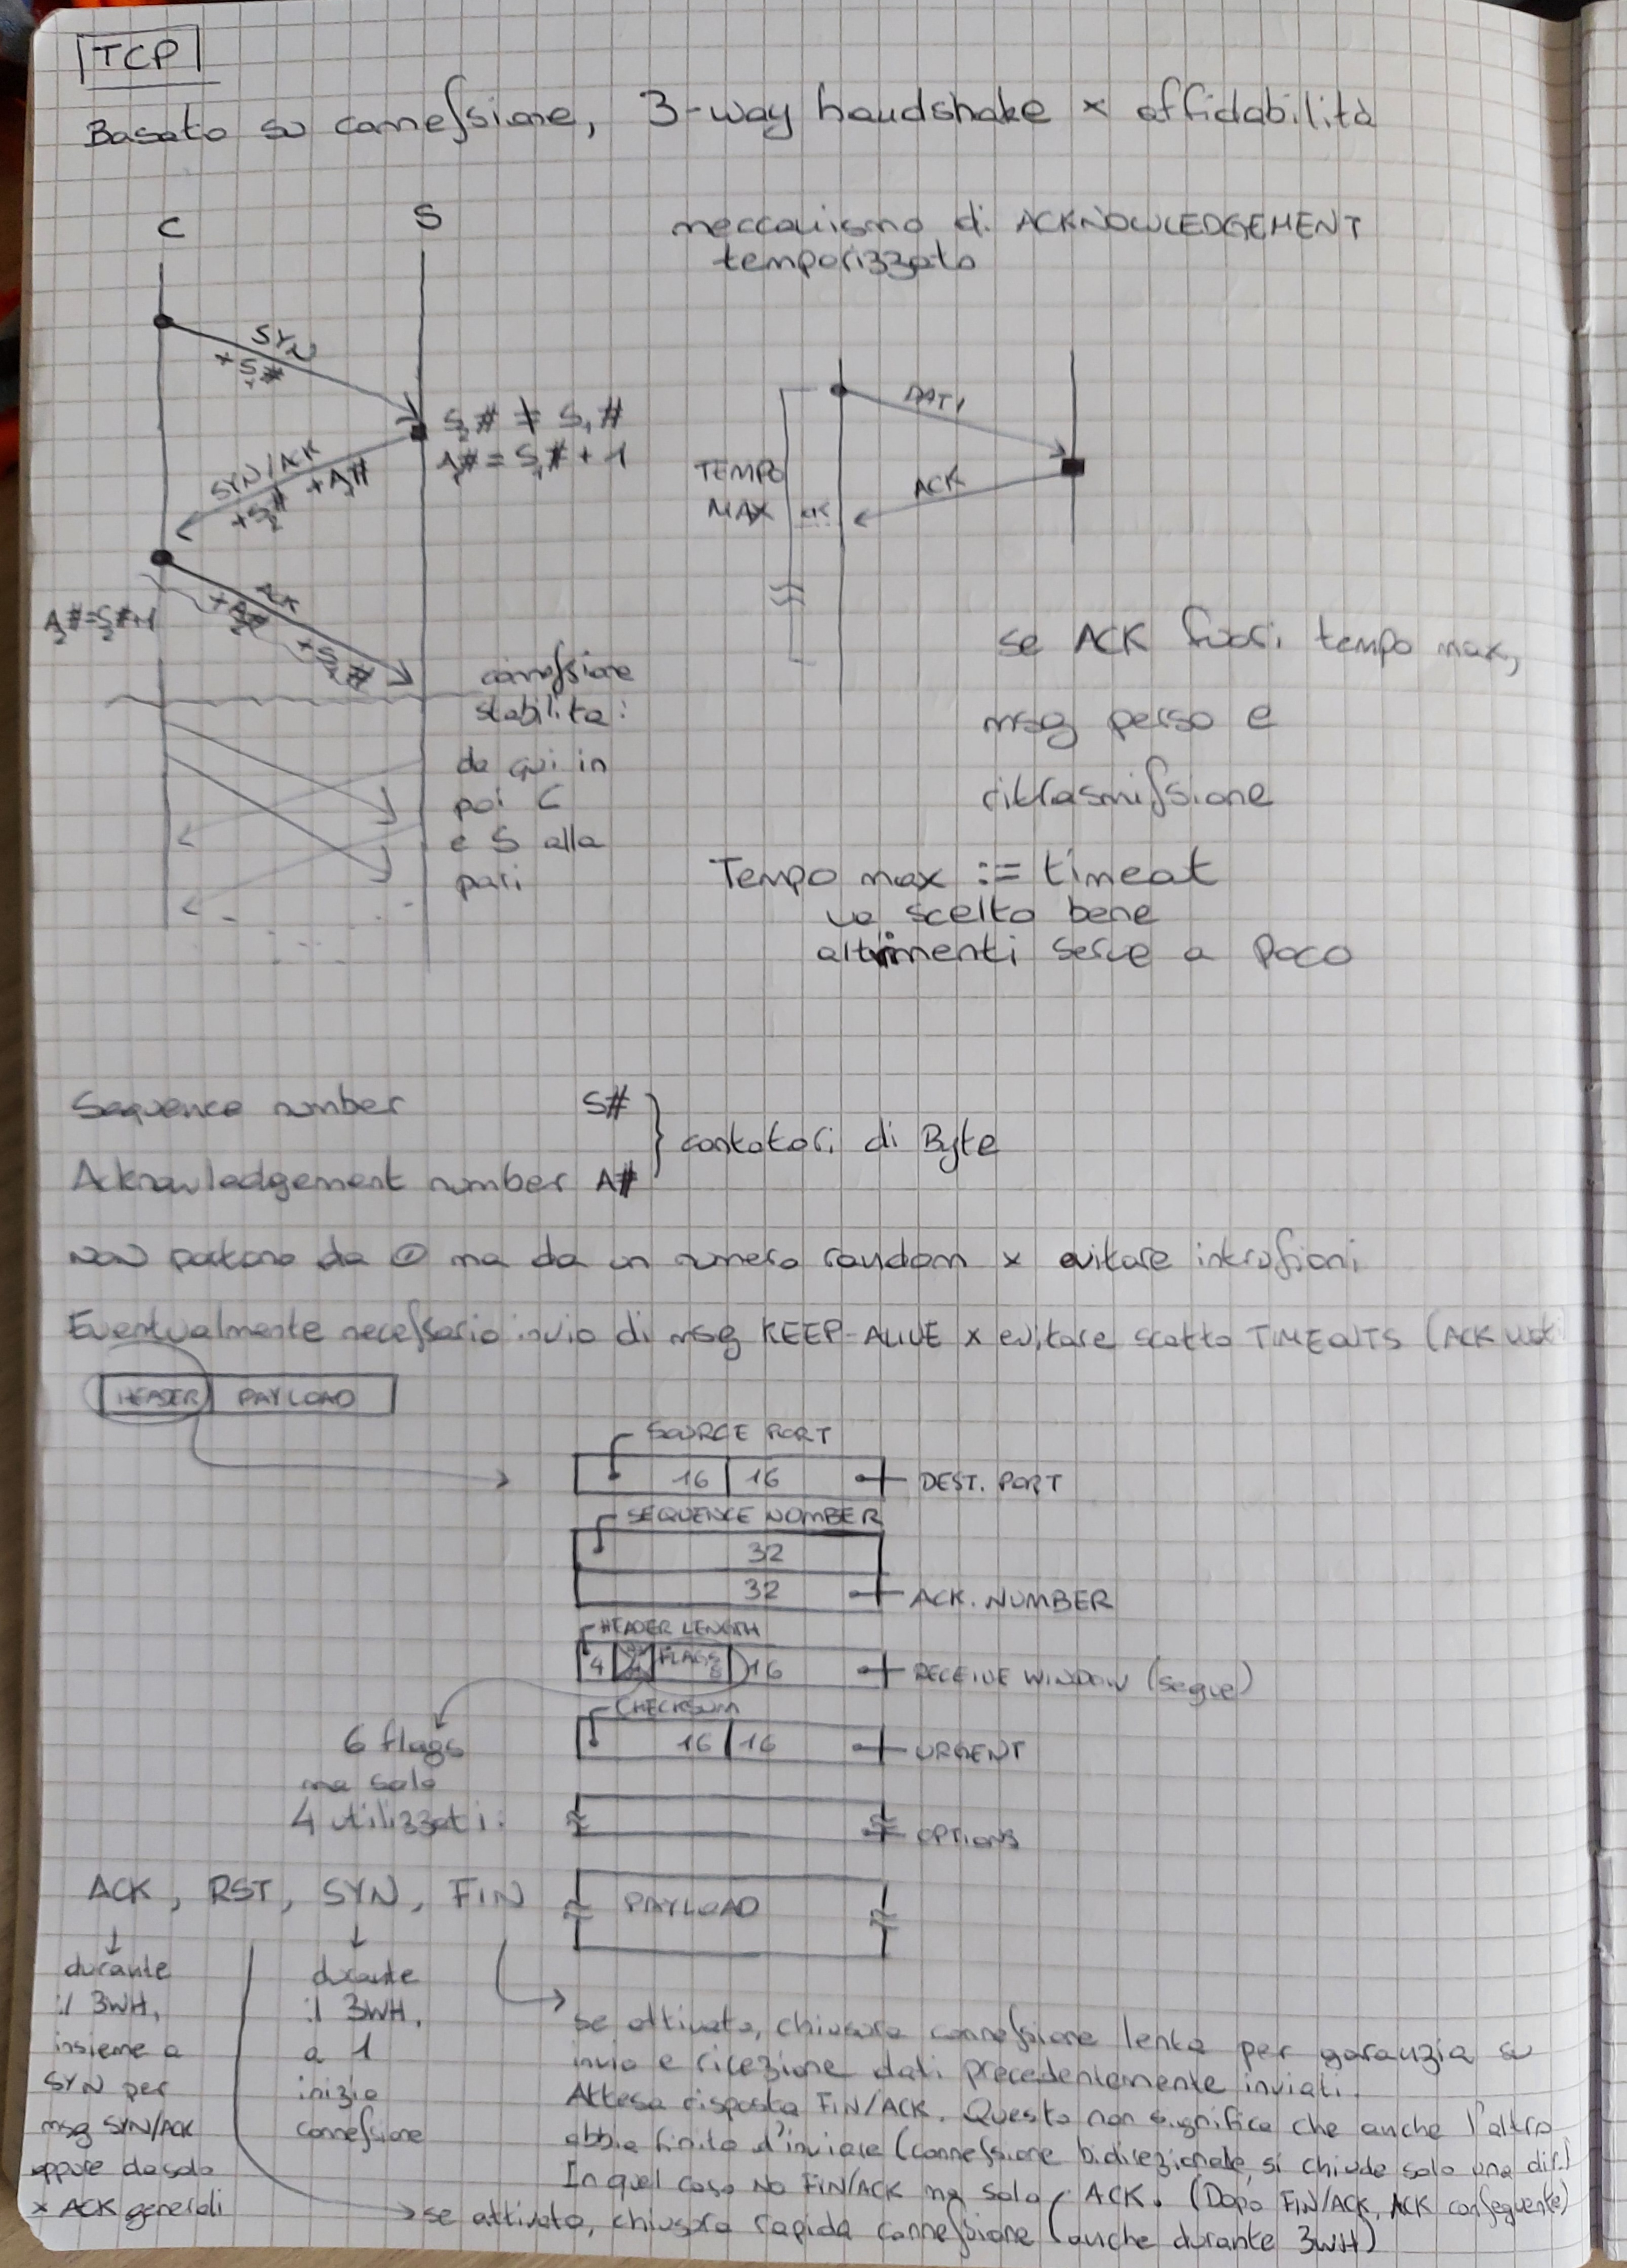 TCP
Basato su connessione, 3-way handshake x affidabilità
C S
meccanismo di ACKNOWLEDGEMENT
temporizzato
SYN
+S₁#
S₂# ≠ S₁#
A₁# = S₁# + 1
SYN/ACK
+S₂# +A₁#
A₂#=S₂#+1
+A₂#
DATI
TEMPO
MAX
ACK
OK
connessione
stabilita:
da qui in
poi C
e S alla
pari
se ACK fuori tempo max,
msg perso e
ritrasmissione
Tempo max := timeout
va scelto bene
altrimenti serve a poco
Sequence number S#
Acknowledgement number A#
contatori di Byte
NON partono da 0 ma da un numero random x evitare intrusioni
Eventualmente necessario invio di msg KEEP-ALIVE x evitare scatto TIMEOUTS (ACK
HEADER PAYLOAD
SOURCE PORT
16 16 DEST. PORT
SEQUENCE NUMBER
32
32 ACK. NUMBER
HEADER LENGTH
4 FLAGS 16 RECEIVE WINDOW (segue)
CHECKSUM
16 16 URGENT
OPTIONS
PAYLOAD
6 flags
ma solo
4 utilizzati:
ACK, RST, SYN, FIN
durante
il 3WH,
insieme a
SYN per
msg SYN/ACK
oppure da solo
x ACK generali
durante
il 3WH,
a 1
inizia
connessione
se attivato, chiusura connessione lenta per garanzia su
invio e ricezione dati precedentemente inviati.
Attesa risposta FIN/ACK. Questo non significa che anche l'altro
abbia finito d'inviare (connessione bidirezionale, si chiude solo una dir.)
In quel caso NO FIN/ACK ma solo ACK. (Dopo FIN/ACK, ACK conseguente)
se attivato, chiusura rapida connessione (anche durante 3WH)